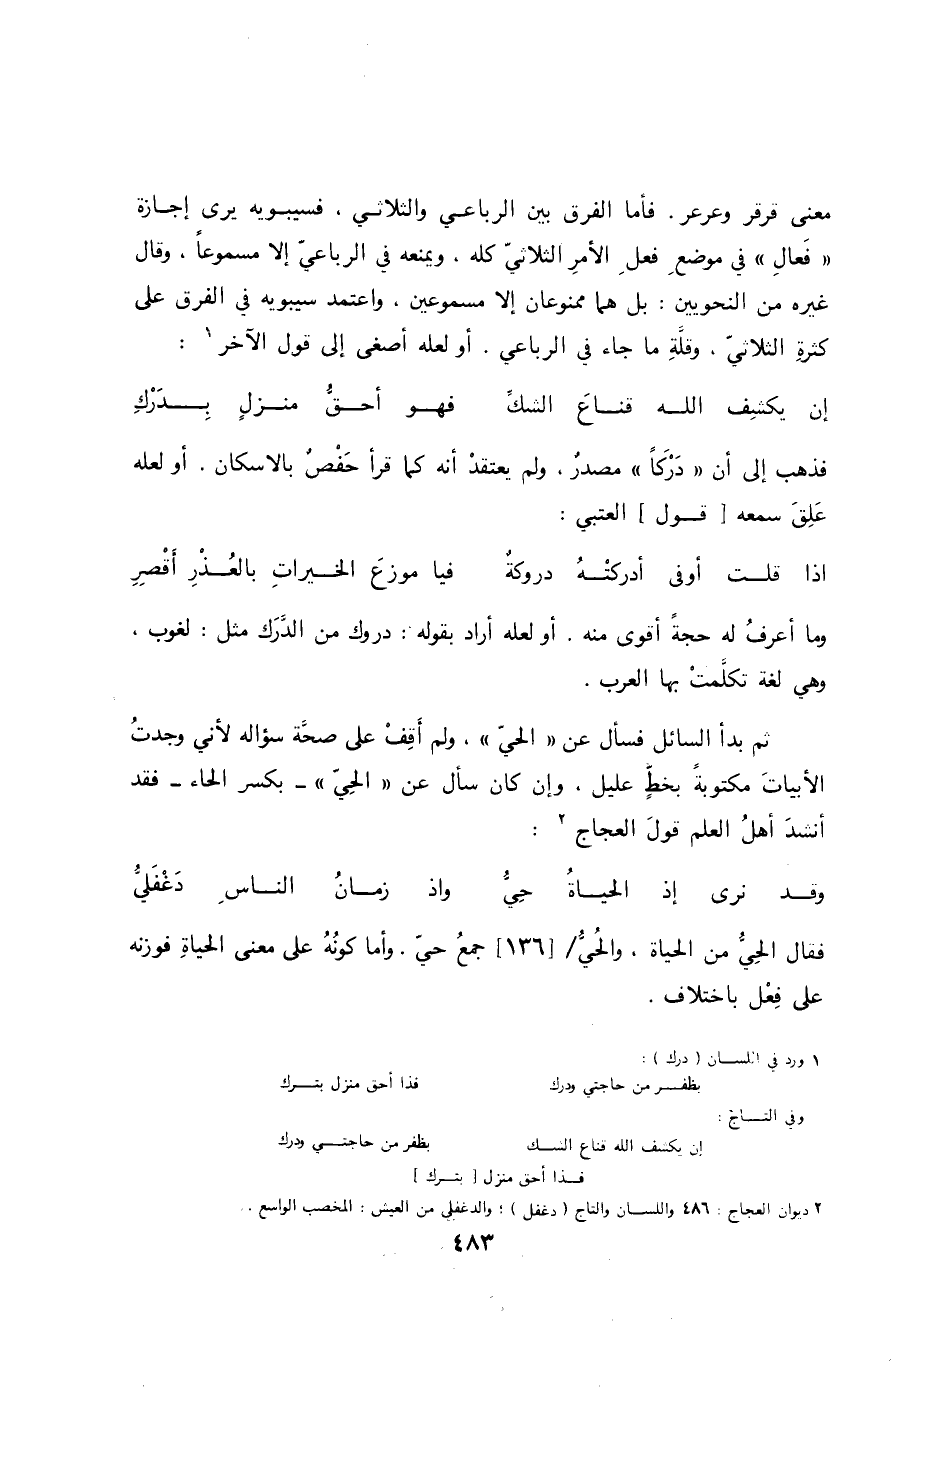 معنى قرقر وعرعر . فأما الفرق بين الرباعي والثلاثي ، فسيبويه يرى إجازة
« فَعالِ » في موضعِ فعل الأمرِ الثلاثيّ كله ، ويمنعه في الرباعيّ إلا مسموعاً ، وقال
غيره من النحويين : بل هما ممنوعان إلا مسموعين ، واعتمد سيبويه في الفرق على
كثرةِ الثلاثيّ ، وقلَّةِ ما جاء في الرباعي . أو لعله أصغى إلى قول الآخر ١ :
إن يكشِف اللـه قناعَ الشكِّ فهـو أحـقُّ منـزلٍ بِـدَرْكِ
فذهب إلى أن « دَرْكاً » مصدرٌ ، ولم يعتقدْ أنه كما قرأ حَفْصٌ بالاسكان . أو لعله
عَلِقَ سمعه [ قـول ] العتبي :
اذا قلـت أوفى أدركتْـهُ دروكةٌ فيا موزعَ الخيراتِ بالعُـذْرِ أَقْصرِ
وما أعرفُ له حجةً أقوى منه . أو لعله أراد بقوله : دروك من الدَّرَك مثل : لغوب ،
وهي لغة تكلَّمتْ بها العرب .
ثم بدأ السائل فسأل عن « الحيّ » ، ولم أَقِفْ على صحَّة سؤاله لأني وجدتُ
الأبياتَ مكتوبةً بخطٍّ عليل ، وإن كان سأل عن « الحِيّ » – بكسر الحاء – فقد
أنشدَ أهلُ العلم قولَ العجاج ٢ :
وقـد نرى إذ الحيـاةُ حِيُّ واذ زمـانُ النـاسِ دَغْفَليُّ
فقال الحِيُّ من الحياة ، والحُيُّ/ [١٣٦] جمعُ حيّ . وأما كونُهُ على معنى الحياةِ فوزنه
على فِعْل باختلاف .
١ ورد في اللسـان ( درك ) :
بظفـر من حاجتي ودرك فذا أحق منزل بتـرك
وفي التـاج :
إن يكشف الله قناع الشـك بظفر من حاجتـي ودرك
فـذا أحق منزل [ بتـرك ]
٢ ديوان العجاج : ٤٨٦ واللسـان والتاج ( دغفل ) ؛ والدغفلي من العيش : المخصب الواسع .
٤٨٣